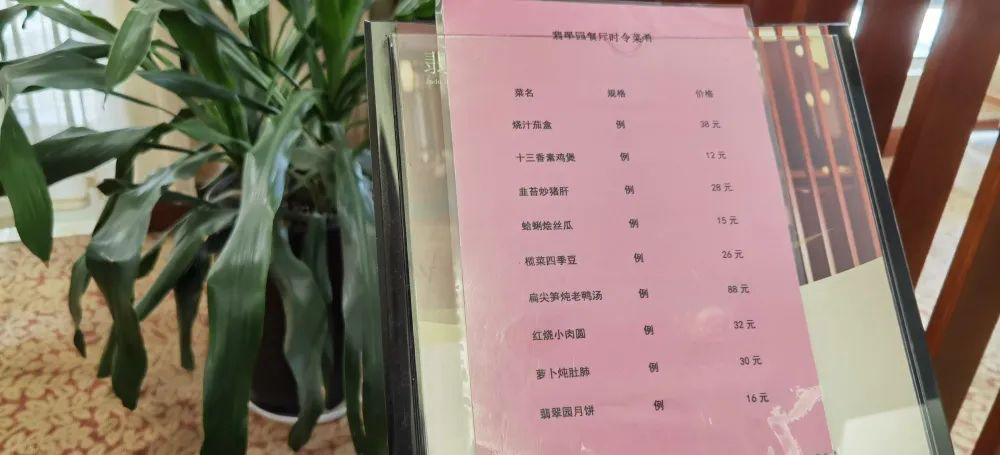 翡翠园餐厅时令菜肴
菜名 规格 价格
烧汁茄盒 例 38 元
十三香素鸡煲 例 12 元
韭苔炒猪肝 例 28 元
蛤蜊烩丝瓜 例 15 元
榄菜四季豆 例 26 元
扁尖笋炖老鸭汤 例 88 元
红烧小肉圆 例 32 元
萝卜炖肚肺 例 30 元
翡翠园月饼 例 16 元